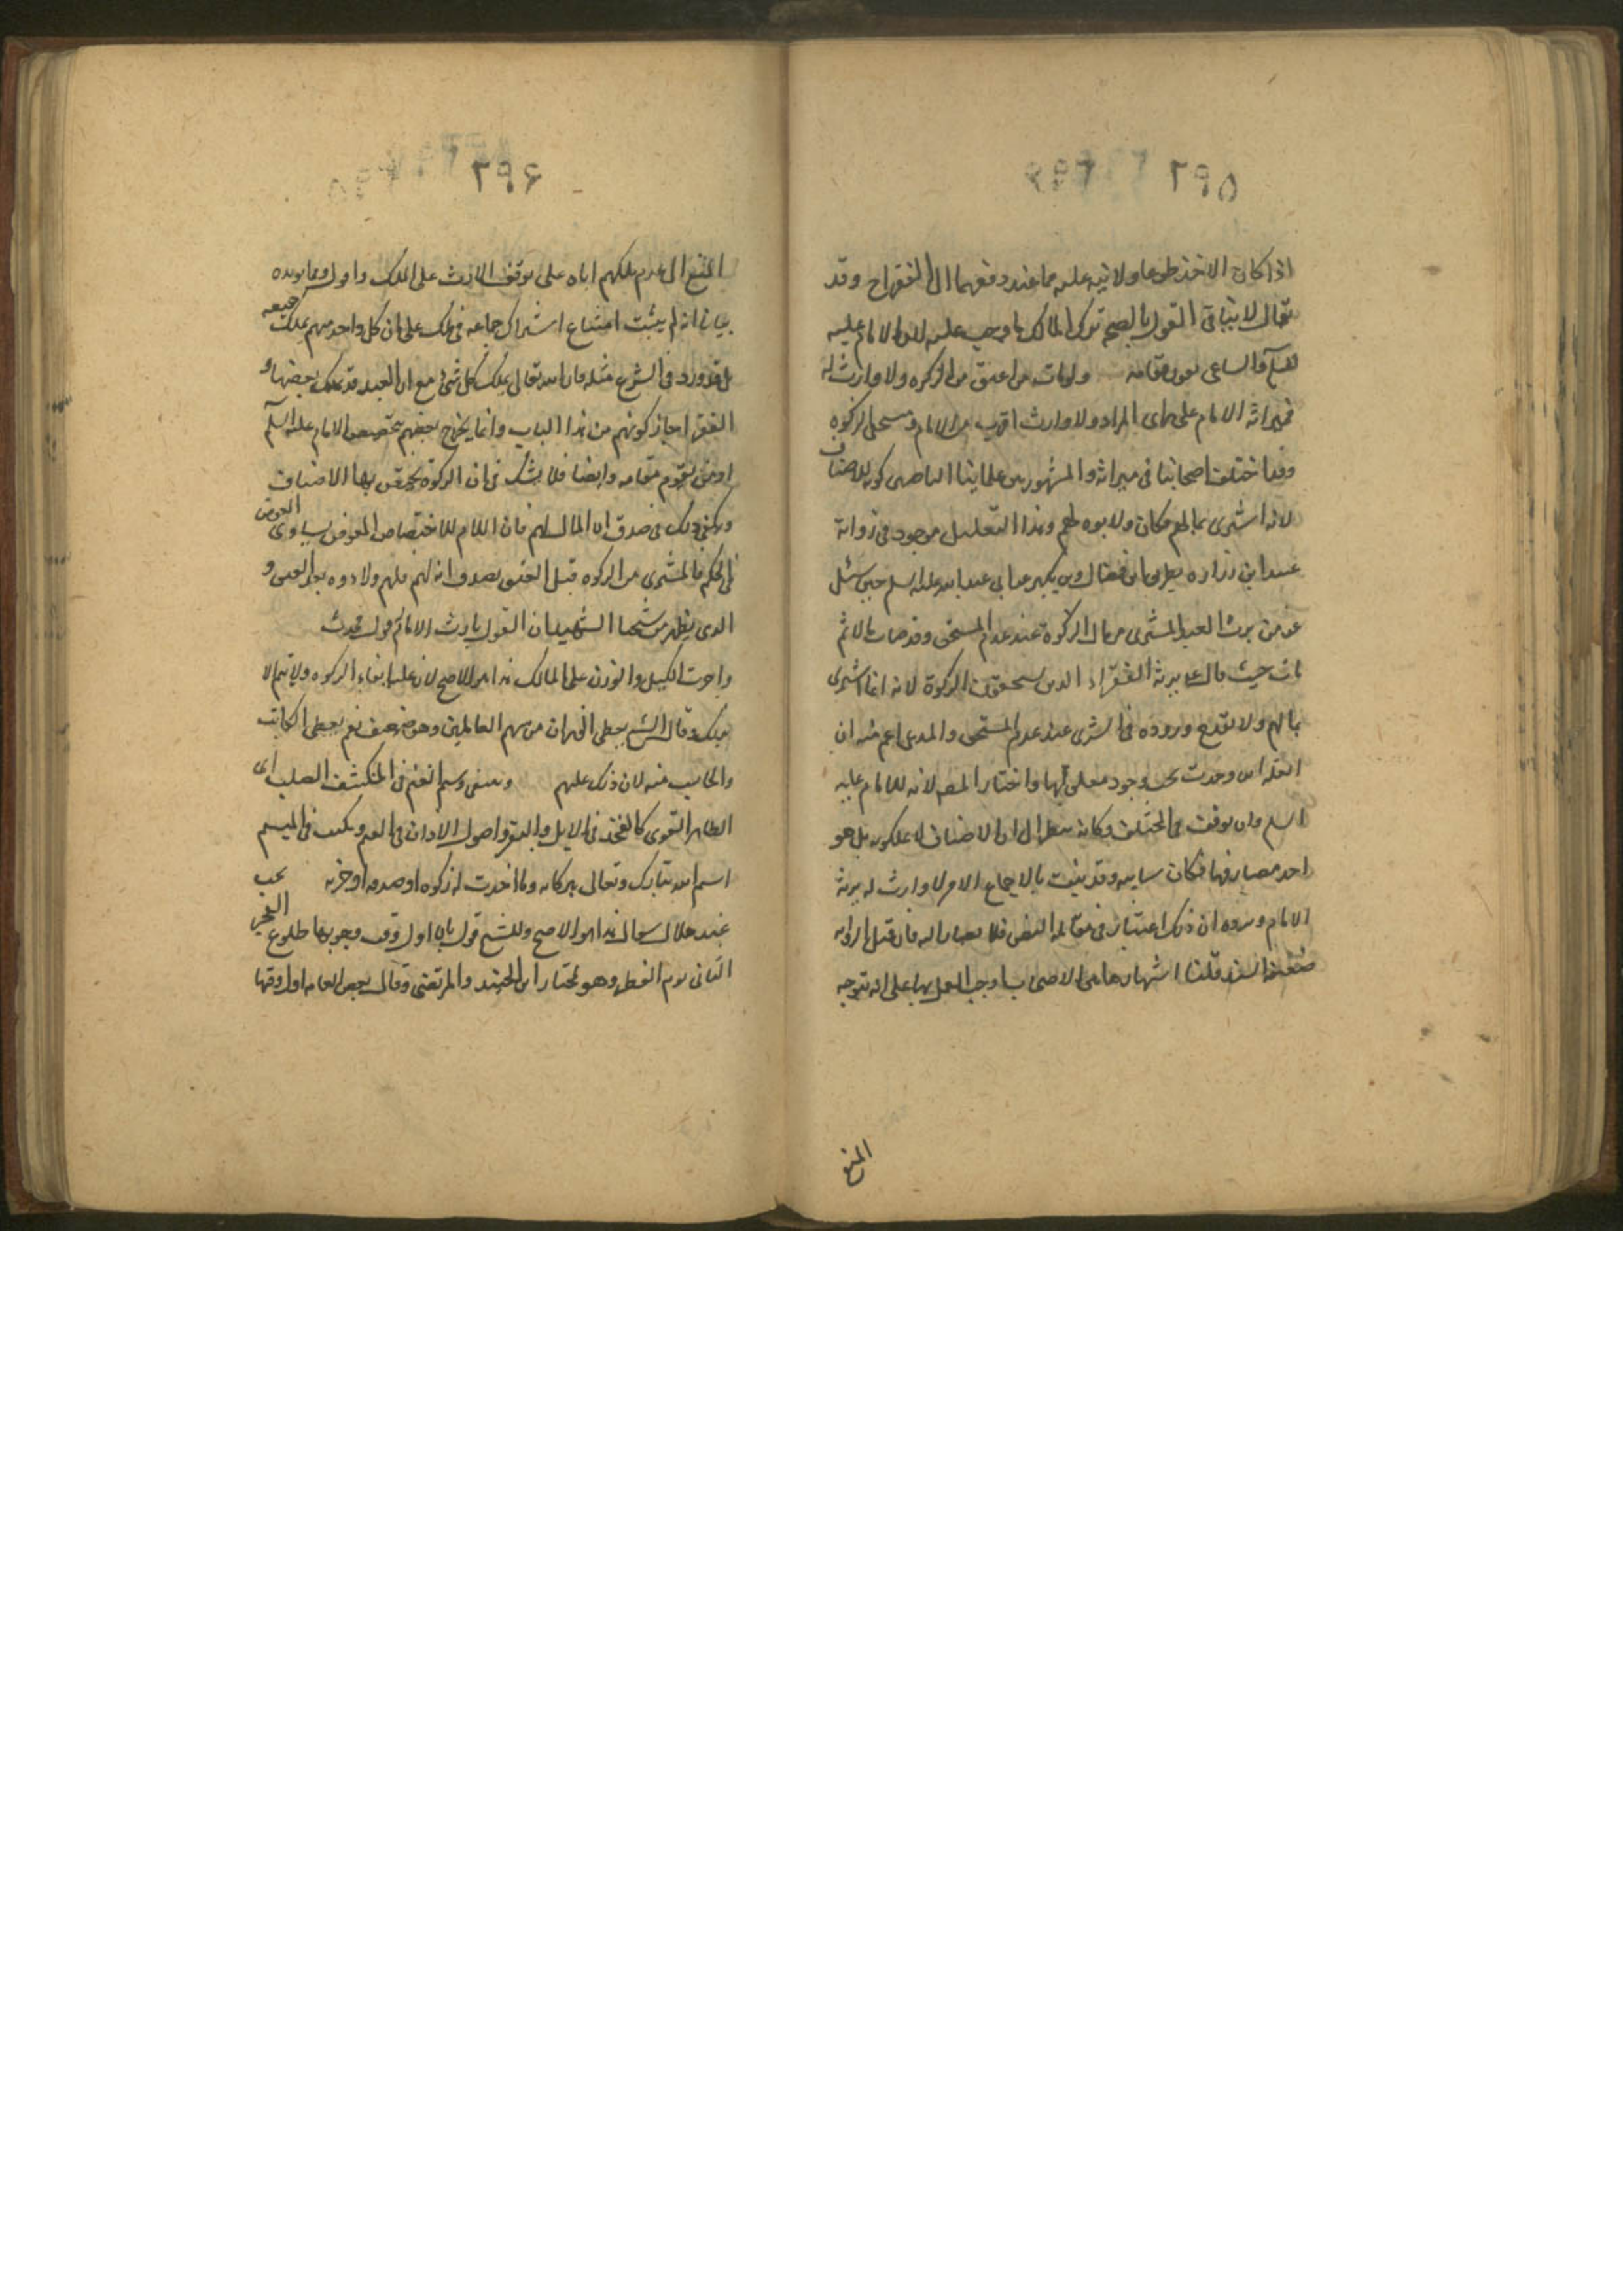 ٢٩٥
اذا كان الاخذ طوعا ولا نيه عليه مما عند دفعهما الى الفقراح وقد
يقال لا ينافى القول بالصح ترك المالك ما وجب عليه لان الامام عليه
السلم والساعى مقامه ولو مات من اعتق من الزكوه ولا وارث له
فميراثه الامام على راى المراد ولا وارث اقرب من الامام ومستحق الزكوه
وقد اختلف اصحابنا فى ميراثه والمشهور بين علمائنا كونه للاصناف
لانه اشترى بمالهم فكان ولاءوه لهم وهذا التعليل موجود فى رواية
عبيد ابن زراره بطريق ابن فضال وبن بكير عن ابى عبد الله عليه السلم حين سئل
عن من يرث العبد المشترى من مال الزكوة عند عدم المستحق وقد مات بلا
بات حيث قال يرثه الفقراء الذين يستحقون الزكوة لانه انما اشترى
بمالهم ولا يقدح وروده فى الشرى عند عدم المستحق والمدعى اعم منه ان
العله اين وجدت يجب وجود معلولها واختار المص لانه للامام عليه
السلم وان توقف فى المختلف وكانه ينظر الى ان الاصناف لا يملكون بل هو
احد مصارفها فكان سايبه وقد ثبت بالاجماع الامر لا وارث له يرثه
الامام ويرده ان ذلك اعتبار فى مقابله النص فلا يصار اليه فان قيل الرواية
ضعيفة السند قلنا اشتهارها بين الاصحاب اوجب العمل بها على انه يتوجه
المنع
٢٩۶
المنع الى عدم ملكهم اياه على توقف الارث على الملك واول ومما يويده
بيان انه لم يثبت امتناع اشتراك جماعه فى ملك على ان كل واحد منهم يملك جميعه
بل قد ورد فى الشرع مثله فان الله تعالى يملك كل شئ مع ان العبد قد يملك بعضها و
الفقراء جاز كونهم من هذا الباب وانما يخرج بعضهم بتخصيص الامام عليه السلم
او من يقوم مقامه وايضا فلا شك فى ان الزكوة يختص بها الاصناف
ويكفى ذلك فى صدق ان المال لهم فان اللام للاختصاص المعوض يساوى العوض
فى الحكم فالمشترى من الزكوه قبل العتق يصدق انه لهم فلهم ولاءوه بعد العتق و
الذى يظهر من شيخنا الشهيد ان القول بارث الامام قول محدث
واجرت الكيل والوزن على المالك هذا هو الاصح لان عليه ايفاء الزكوه ولا يتم الا
بذلك وقال الشيخ يعطى الخازن من سهم العاملين وهو ضعيف نعم يعطى الكاتب
والحاسب منه لان ذلك عليهم وينبغى وسم النعم فى المنكشف الصلب اى
الظاهر القوى كالفخذ فى الابل والبقر واصول الاذان فى الغنم ويكتب فى الميسم
اسم الله تبارك وتعالى بركاته وما اخذت له زكوه او صدقه او جزيه يجب
عند هلال شوال هذا هو الاصح وللشيخ قول بان اول وقت وجوبها طلوع الفجر
الثانى يوم الفطر وهو مختار ابن الجنيد والمرتضى وقال بعض العامه اول وقتها